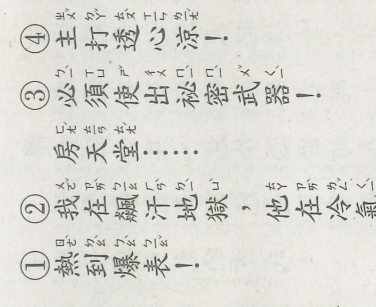 ①熱到爆表！
②我在飆汗地獄，他在冷氣
房天堂……
③必須使出祕密武器！
④主打透心涼！